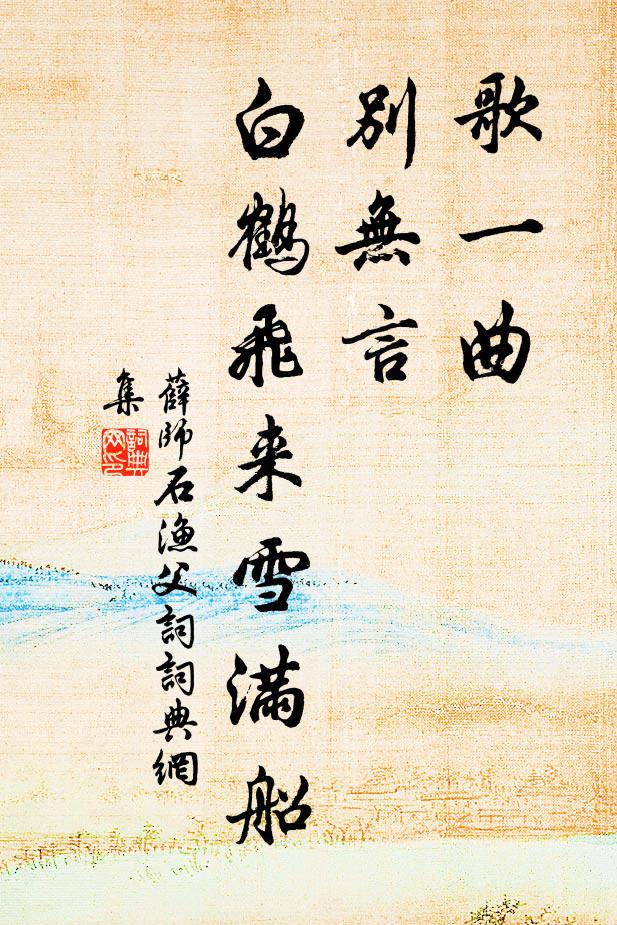 歌一曲
別無言
白鶴飛来雪滿船
薛師石漁父詞詞典網
集
詞典
网印